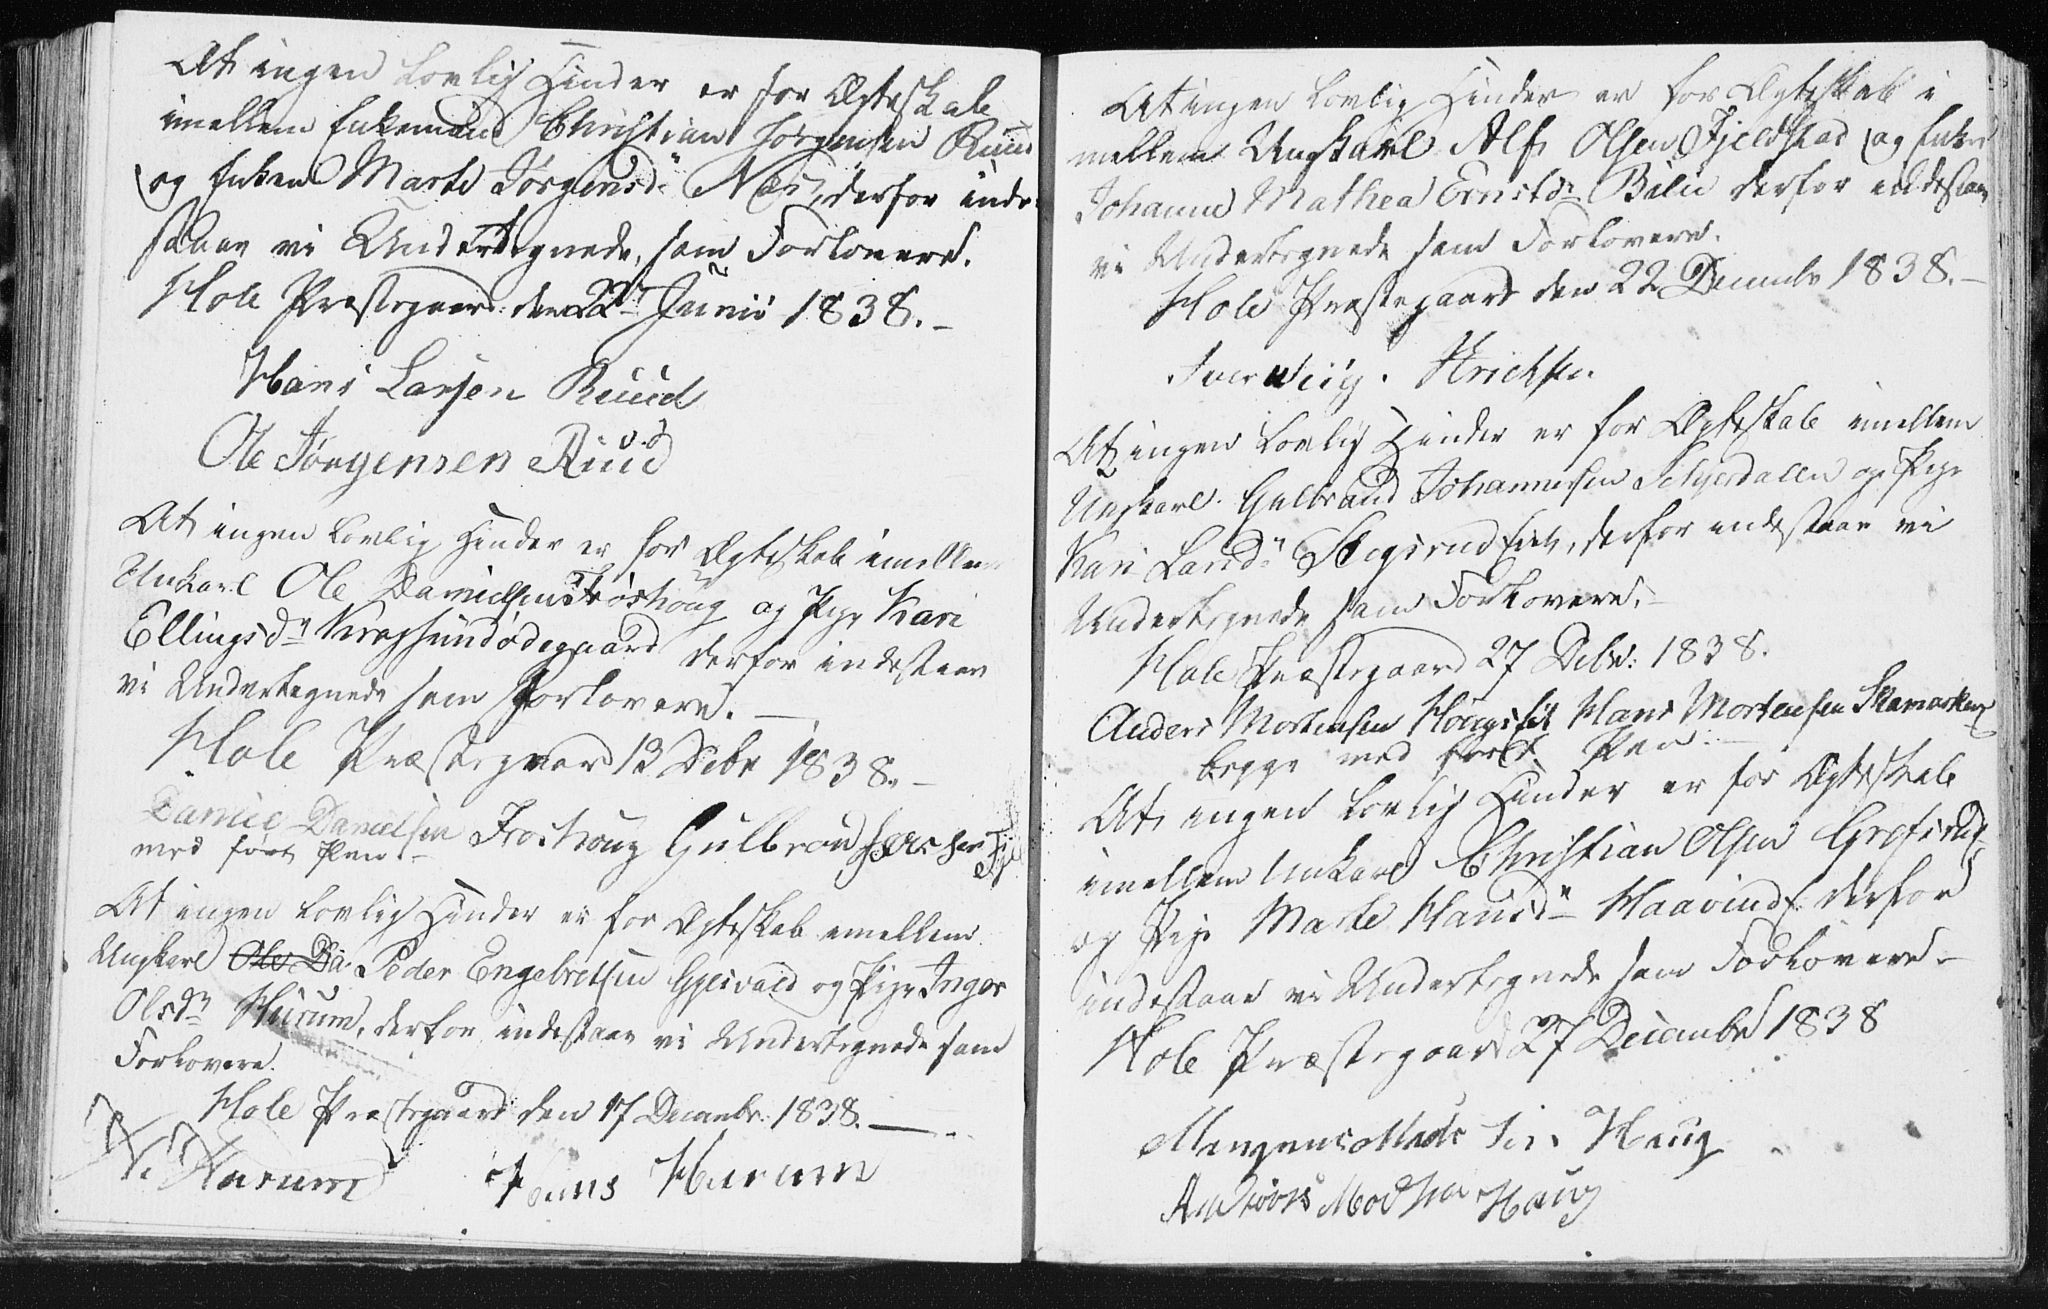 At ingen lovlig Hinder er for Ægteskab
imellem Enkemand Christian Jørgensen Ruud
og Enken Marte Jørgensd. Næs, derfor inde-
staae vi Undertegnede, som Forlovere.
Hole Præstegaard den 22de Junii 1838.
Hans Larsen Ruud
Ole Jørgensen Ruud
At ingen lovlig Hinder er for Ægteskab imellem
Unkarl Ole Danielsen Frøshoug og Pige Kari
Ellingsdn Krogsundødegaard derfor indestaae
vi Undertegnede som Forlovere.
Hole Præstegaard 13 Debr 1838.
Daniel Danielsen Froshoug Gulbran
med ført Pen
At ingen lovlig Hinder er for Ægteskab imellem
Ungkarl Ole Da Peder Engebretsen Gjesvald og Pige Inger
Olsdn Hurum, derfor indestaae vi Undertegnede som
Forlovere.
Hole Præstegaard den 17 Decembr. 1838.
Hurum Hans Hurum
At ingen lovlig Hinder er for Ægteskab i
mellem Ungkarl Alf Olsen Fjeldstad og Enke
Johanne Mathea Ernstdn Bili derfor indestaae
vi Undertegnede som Forlovere.
Hole Præstegaard den 22 Decembr 1838.
Iver Wiig. Hrichsen
At ingen lovlig Hinder er for Ægteskab imellem
Ungkarl Gulbrand Johannesen Seljedalen og Pige
Kari Larsdn Stegsrud, derfor indestaae vi
Undertegnede som Forlovere.
Hole Præstegaard 27 Debr: 1838.
Anders Mortensen Hans Mortensen
begge med ført Pen.
At ingen lovlig Hinder er for Ægteskab
imellem Unkarl Christian Olsen Grøfsrud
og Pige Marte Hansdn Haavind derfor
indestaae vi Undertegnede som Forlovere.
Hole Præstegaard 27 Decembr 1838
Mads Haug
Haug